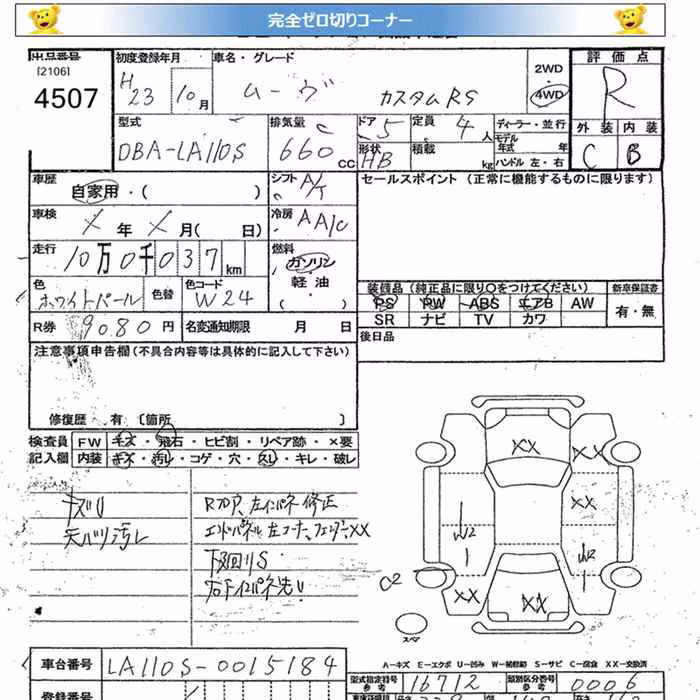 完全ゼロ切りコーナー
出品番号
[2106]
4507
初度登録年月
H23 10月
車名・グレード
ムーヴ カスタムRS
2WD
4WD
評価点
R
型式
DBA-LA110S
排気量
660 CC
ドア 5
形状 HB
定員 4人
積載 kg
ディーラー・並行
モデル年式 年
ハンドル 左・右
外装 内装
C B
車歴 自家用・( )
シフト A/T
セールスポイント(正常に機能するものに限ります)
車検 年 月( 日)
冷房 AAC
走行
10万0千037km
燃料
ガソリン
軽油
( )
色
ホワイトパール
色替
色コード
W24
装備品(純正品に限り○をつけてください)
新車保証書
PS PW ABS エアB AW
有・無
SR ナビ TV カワ
R券 9080円
名変通知期限 月 日
後日品
注意事項申告欄(不具合内容等は具体的に記入して下さい)
修復歴 有〔箇所 〕
検査員 FW キズ・飛石・ヒビ割・リペア跡・×要
記入欄 内装 キズ・汚レ・コゲ・穴・スレ・キレ・破レ
キズU
天バリ汚レ
Rフロア、左インパネ修正
エンドパネル左コーナー、フェンダーXX
下回りS
右下インパネ先U
XX
XX
XX
W2
W2
C2
XX
XX
スペア
A-キズ E-エクボ U-凹み W-補修跡 S-サビ C-腐食 XX-交換済
車台番号 LA110S-0015184
型式指定番号
参考
16712
類別区分番号
参考
0006
登録番号